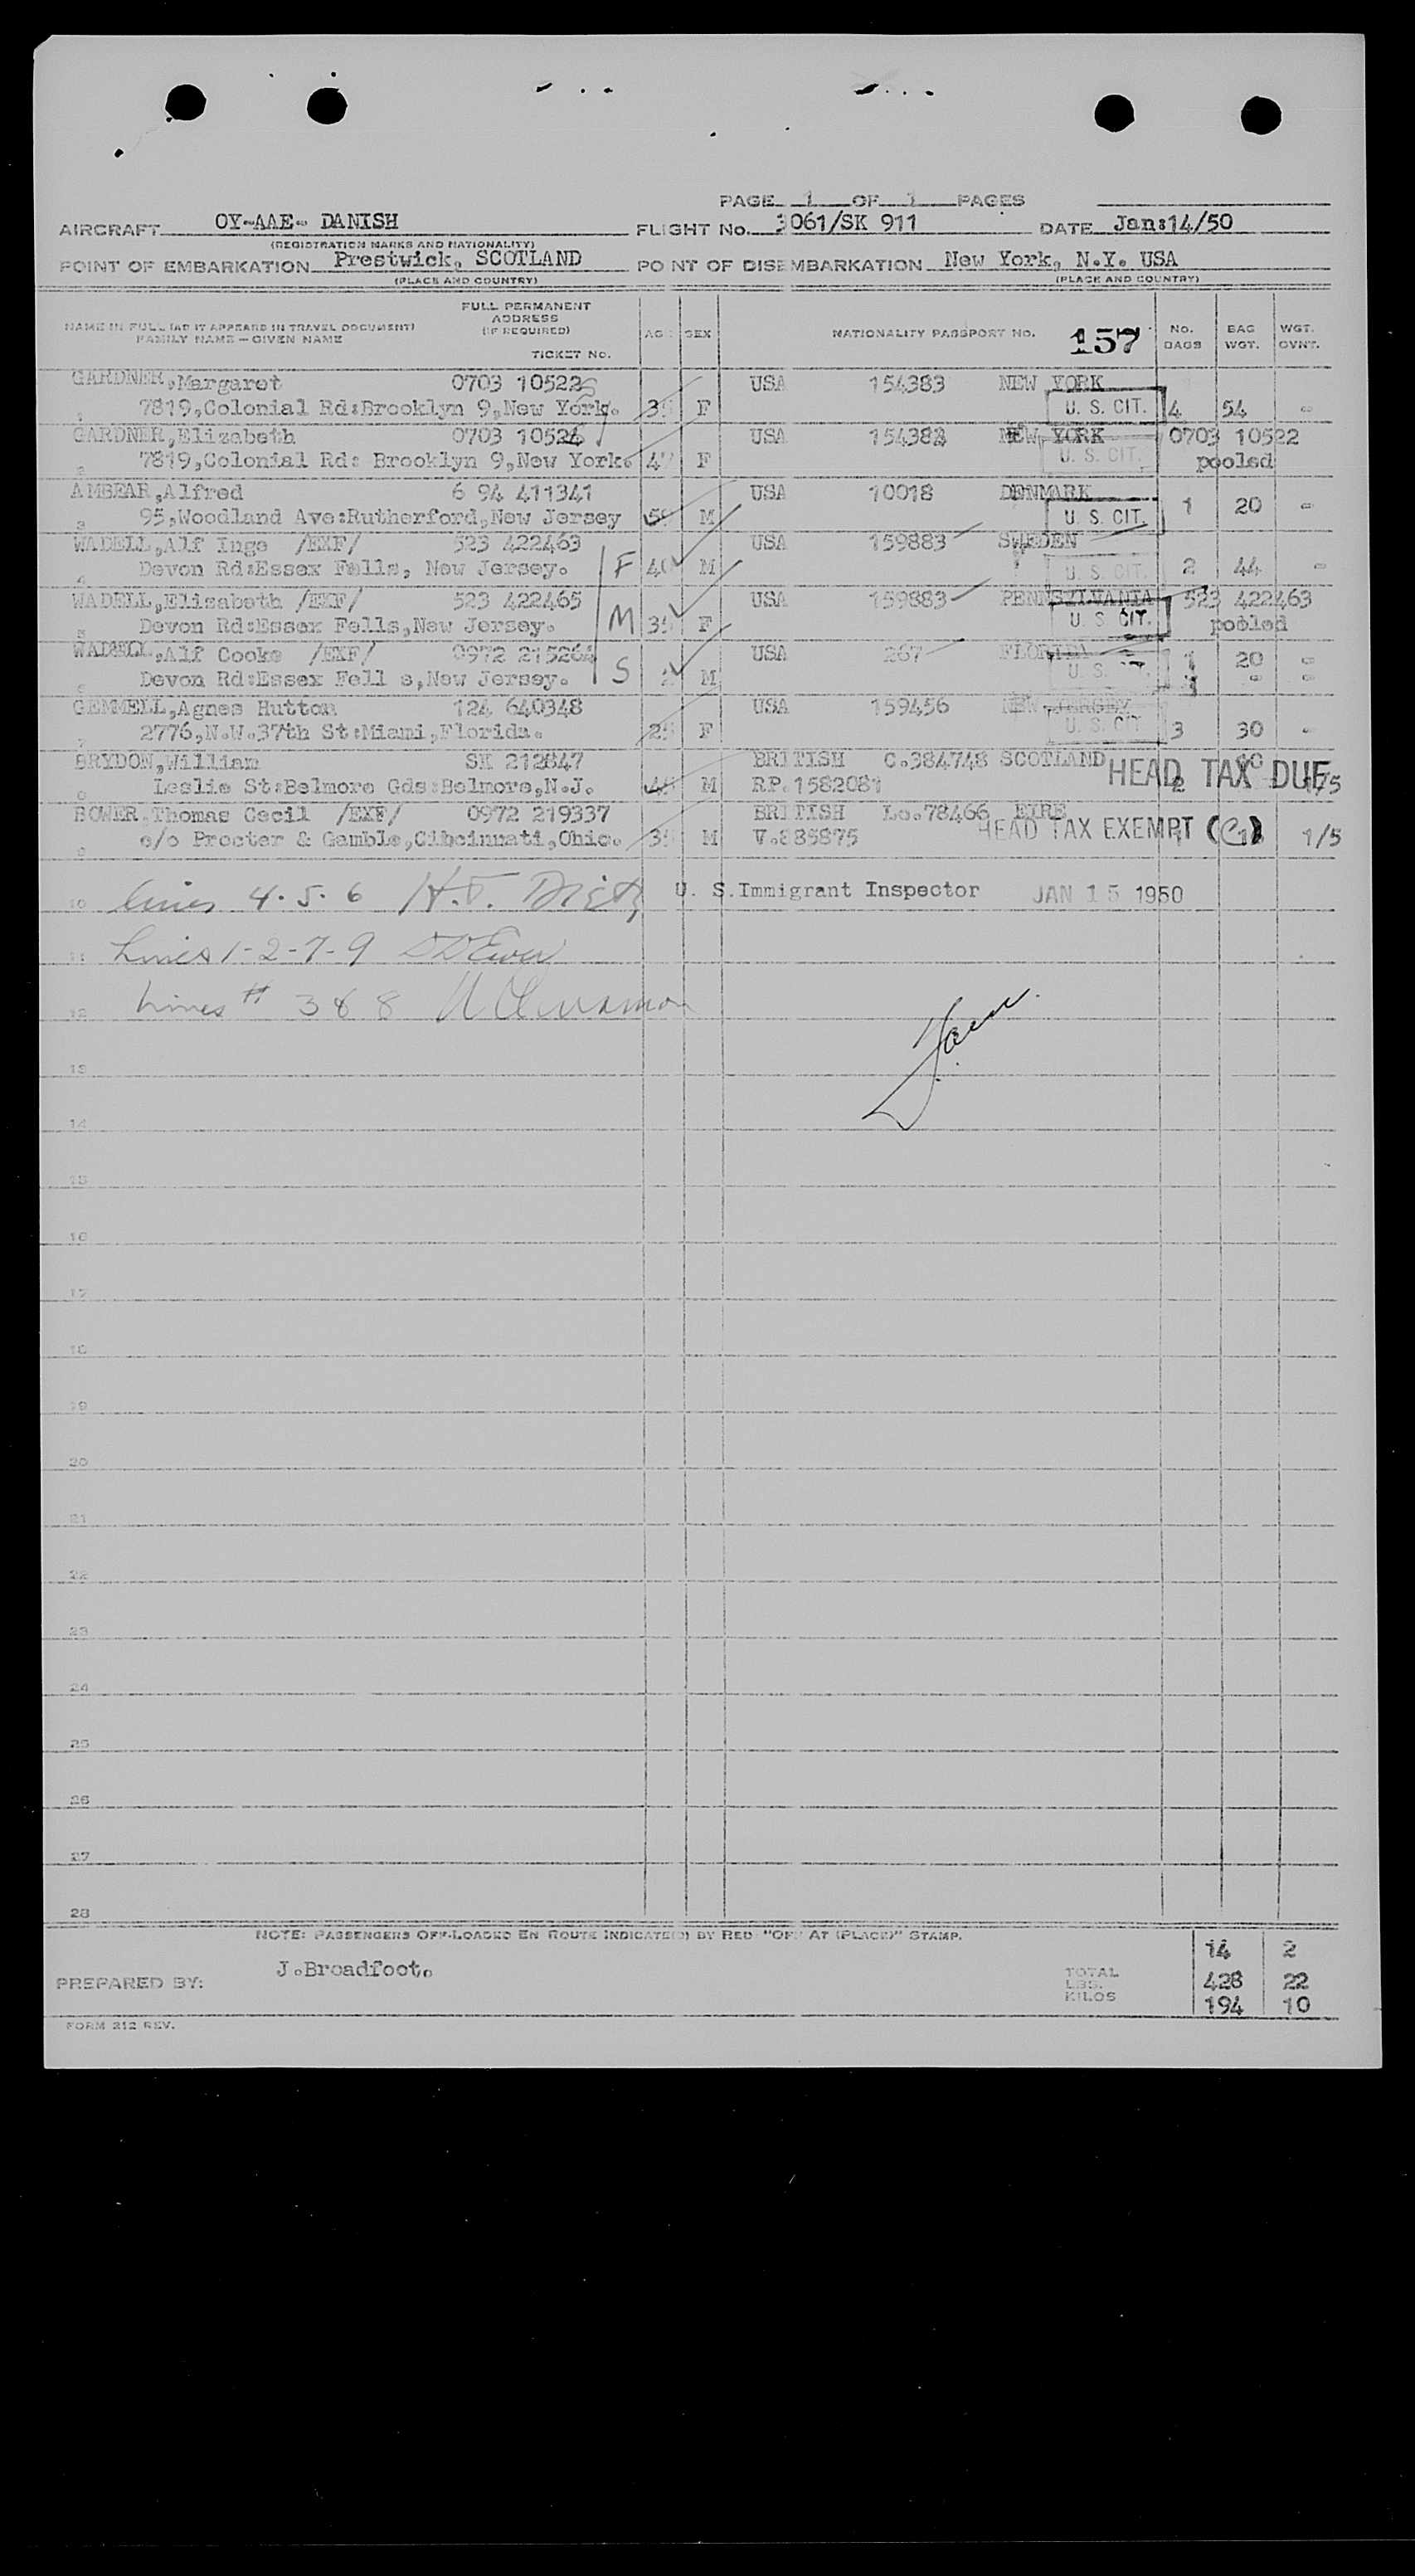 PAGE 1 OF 1 PAGES
AIRCRAFT OY-AAE- DANISH FLIGHT No. 3061/SK 911 DATE Jan:14/50
(REGISTRATION MARKS AND NATIONALITY)
POINT OF EMBARKATION Prestwick, SCOTLAND POINT OF DISEMBARKATION New York, N.Y. USA
(PLACE AND COUNTRY) (PLACE AND COUNTRY)
NAME IN FULL (AS IT APPEARS IN TRAVEL DOCUMENT) FAMILY NAME — GIVEN NAME FULL PERMANENT ADDRESS (IF REQUIRED) TICKET No. AGE SEX NATIONALITY PASSPORT No. 157 No. BAGS BAG WGT. WGT. OVNT.
GARDNER,Margaret 0703 10522 USA 154383 NEW YORK
1 7819,Colonial Rd:Brooklyn 9,New York. F U. S. CIT. 4 54 -
GARDNER,Elizabeth 0703 10524 USA 154382 NEW YORK 0703 10522
2 7819,Colonial Rd: Brooklyn 9,New York. F U. S. CIT. pooled
AMBEAR,Alfred 6 94 411341 USA 10018 DENMARK
3 95,Woodland Ave:Rutherford,New Jersey M U. S. CIT. 1 20 -
WADELL,Alf Inge /EXF/ 523 422463 USA 159883 SWEDEN
4 Devon Rd:Essex Fells, New Jersey. F 40 M U. S. CIT. 2 44 -
WADELL,Elisabeth /EXF/ 523 422465 USA 159883 PENNSYLVANIA 523 422463
5 Devon Rd:Essex Fells,New Jersey. M F U. S. CIT. pooled
WADELL,Alf Cooke /EXF/ 0972 USA 267 FLORIDA 1 20 -
6 Devon Rd:Essex Fell s,New Jersey. S M U. S. CIT. 1 - -
GEMMELL,Agnes Hutton 124 640348 USA 159456 NEW JERSEY
7 2776,N.W.37th St:Miami,Florida. F U. S. CIT 3 30 -
BRYDON,William SK 212847 BRITISH C.384748 SCOTLAND HEAD TAX DUE
8 Leslie St:Belmore Gds:Belmore,N.J. M RP.1582081 2
BOWER,Thomas Cecil /EXF/ 0972 219337 BRITISH Lo.78466 EIRE HEAD TAX EXEMPT (C1)
9 c/o Procter & Gamble,Cibcinnati,Ohio. M V.885875 1/5
10 lines 4. 5. 6 H.F. Dietz U. S.Immigrant Inspector JAN 15 1950
11 Lines 1-2-7-9
12 Lines # 3 & 8
13
14
15
16
17
18
19
20
21
22
23
24
25
26
27
28
NOTE: PASSENGERS OFF-LOADED EN ROUTE INDICATED BY RED "OFF AT (PLACE)" STAMP.
14 2
PREPARED BY: J.Broadfoot. TOTAL LBS. 428 22
KILOS 194 10
FORM 212 REV.